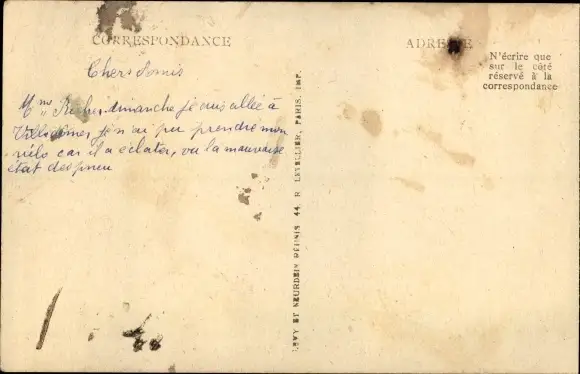 CORRESPONDANCE
ADRESSE
N'écrire que
sur le côté
réservé à la
correspondance
Chers Amis
Mme dimanche je suis allée à
je n ai pu prendre mon
vélo car il a éclater, vu la mauvaise
état des pneu
LEVY ET NEURDEIN RÉUNIS 44, R LETELLIER, PARIS. IMP.